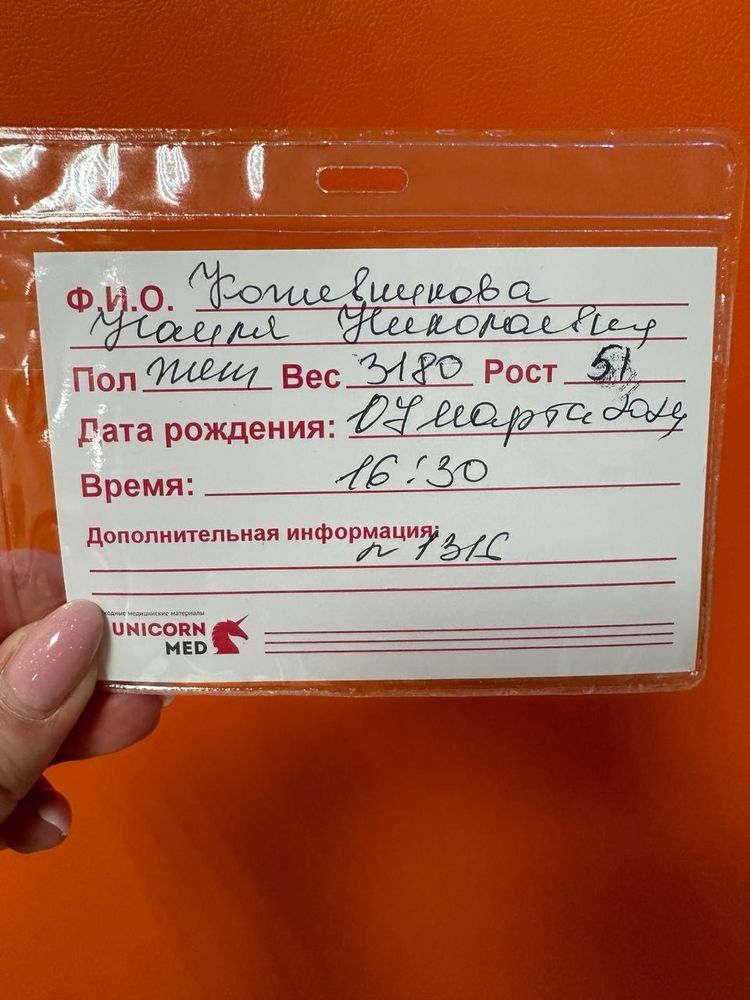 Ф.И.О. Кожевникова
Николаевна
Пол жен Вес 3180 Рост 51
Дата рождения: 07 марта
Время: 16:30
Дополнительная информация:
1316
ходные медицинские материалы
UNICORN
MED